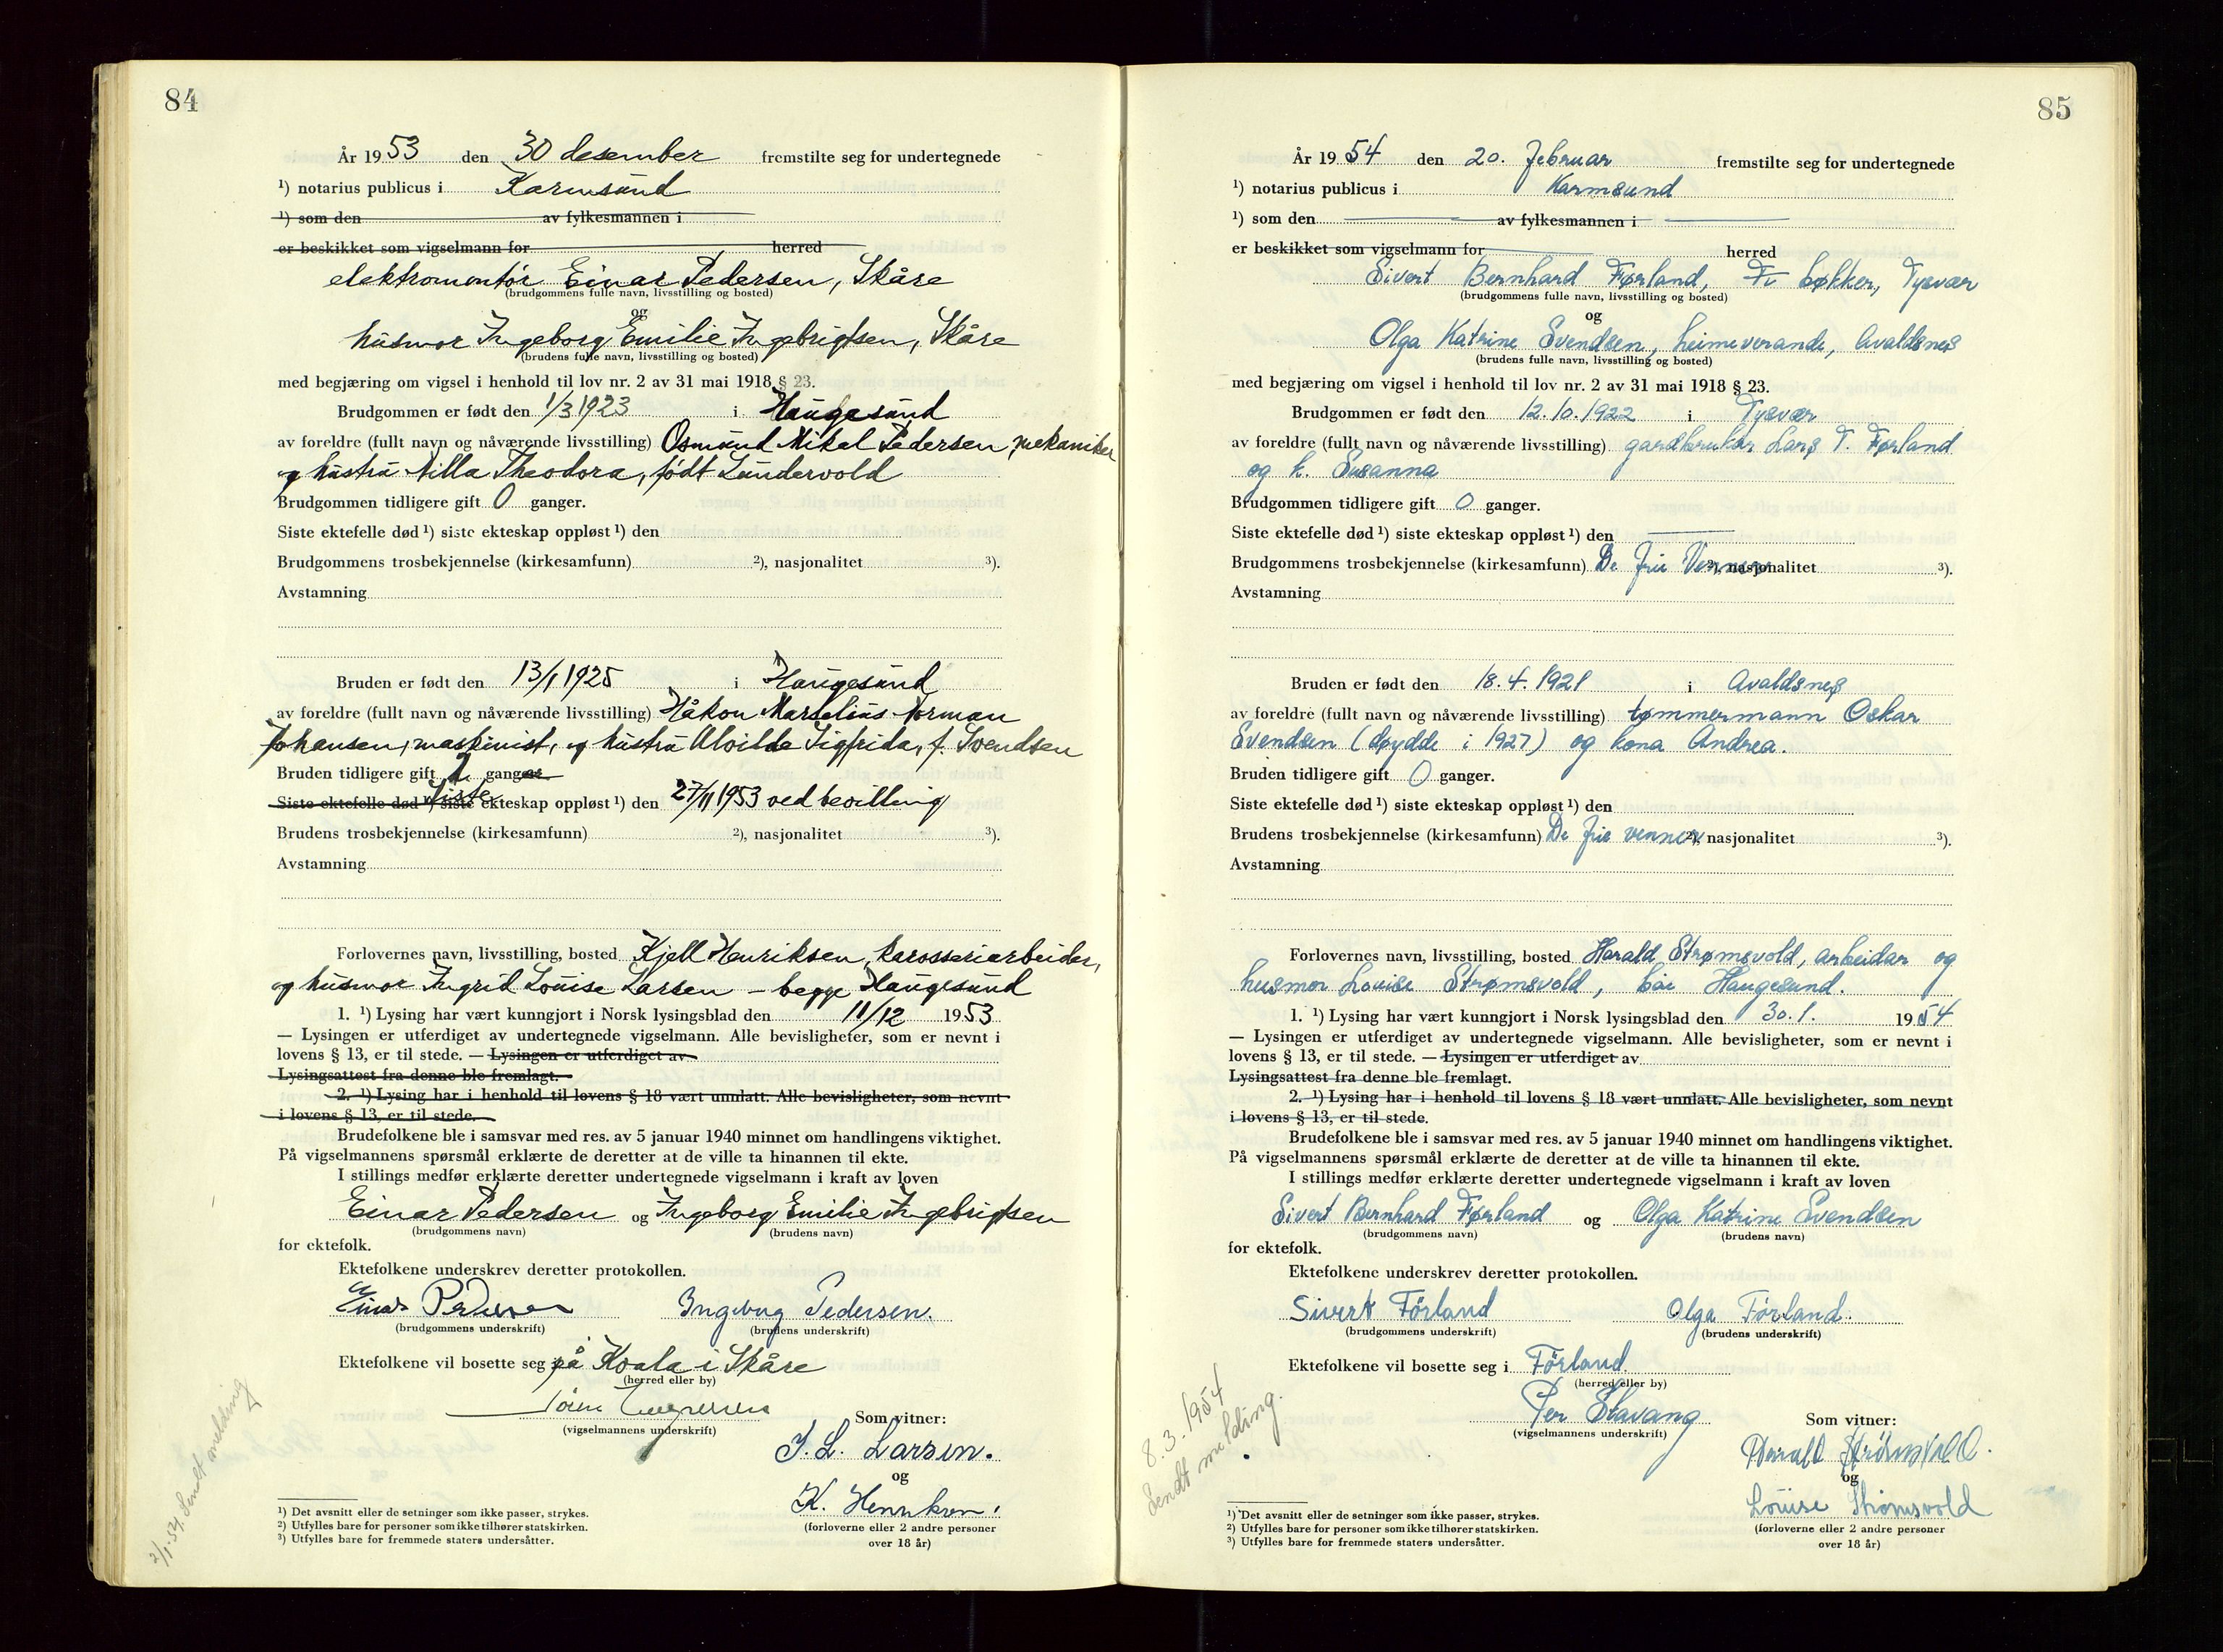 84
År 1953 den 30 desember fremstilte seg for undertegnede
¹) notarius publicus i Karmsund
¹) som den av fylkesmannen i
er beskikket som vigselmann for herred
elektromontør Einar Pedersen, Skåre
(brudgommens fulle navn, livsstilling og bosted)
og
husmor Ingeborg Emilie Ingebrigtsen, Skåre
(brudens fulle navn, livsstilling og bosted)
med begjæring om vigsel i henhold til lov nr. 2 av 31 mai 1918 § 23.
Brudgommen er født den 1/3 1923 i Haugesund
av foreldre (fullt navn og nåværende livsstilling) Osmund Mikal Pedersen, mekaniker
og hustru Milla Theodora, født Lundervold
Brudgommen tidligere gift 0 ganger.
Siste ektefelle død ¹) siste ekteskap oppløst ¹) den
Brudgommens trosbekjennelse (kirkesamfunn) ²), nasjonalitet ³).
Avstamning
Bruden er født den 13/1 1925 i Haugesund
av foreldre (fullt navn og nåværende livsstilling) Håkon Marselius Norman
Johansen, maskinist, og hustru Alvilde Sigfrida, f. Svendsen
Bruden tidligere gift 1 ganger
Siste ektefelle død ¹) siste Siste ekteskap oppløst ¹) den 27/11 1953 ved bevilling
Brudens trosbekjennelse (kirkesamfunn) ²), nasjonalitet ³).
Avstamning
Forlovernes navn, livsstilling, bosted Kjell Henriksen, karosseriarbeider,
og husmor Ingrid Louise Larsen – begge Haugesund
1. ¹) Lysing har vært kunngjort i Norsk lysingsblad den 11/12 1953
— Lysingen er utferdiget av undertegnede vigselmann. Alle bevisligheter, som er nevnt i
lovens § 13, er til stede. — Lysingen er utferdiget av
Lysingsattest fra denne ble fremlagt.
2. ¹) Lysing har i henhold til lovens § 18 vært unnlatt. Alle bevisligheter, som nevnt
i lovens § 13, er til stede.
Brudefolkene ble i samsvar med res. av 5 januar 1940 minnet om handlingens viktighet.
På vigselmannens spørsmål erklærte de deretter at de ville ta hinannen til ekte.
I stillings medfør erklærte deretter undertegnede vigselmann i kraft av loven
Einar Pedersen og Ingeborg Emilie Ingebrigtsen
(brudgommens navn) (brudens navn)
for ektefolk.
Ektefolkene underskrev deretter protokollen.
Einar Pedersen Ingeborg Pedersen.
(brudgommens underskrift) (brudens underskrift)
Ektefolkene vil bosette seg på Kvala i Skåre
(herred eller by)
(vigselmannens underskrift)
Som vitner:
I. L. Larsen.
og
K. Henriksen.
(forloverne eller 2 andre personer
over 18 år)
¹) Det avsnitt eller de setninger som ikke passer, strykes.
²) Utfylles bare for personer som ikke tilhører statskirken.
³) Utfylles bare for fremmede staters undersåtter.
2/1.54. Sendt melding
85
År 1954 den 20. februar fremstilte seg for undertegnede
¹) notarius publicus i Karmsund
¹) som den av fylkesmannen i
er beskikket som vigselmann for herred
Sivert Bernhard Førland, Fi bøkker, Tysvær
(brudgommens fulle navn, livsstilling og bosted)
og
Olga Katrine Svendsen, heimeverande, Avaldsnes
(brudens fulle navn, livsstilling og bosted)
med begjæring om vigsel i henhold til lov nr. 2 av 31 mai 1918 § 23.
Brudgommen er født den 12.10.1922 i Tysvær
av foreldre (fullt navn og nåværende livsstilling) gardbrukar Lars T. Førland
og k. Susanna
Brudgommen tidligere gift 0 ganger.
Siste ektefelle død ¹) siste ekteskap oppløst ¹) den
Brudgommens trosbekjennelse (kirkesamfunn) De frie Venner ²), nasjonalitet ³).
Avstamning
Bruden er født den 18.4.1921 i Avaldsnes
av foreldre (fullt navn og nåværende livsstilling) tømmermann Oskar
Svendsen (døydde i 1927) og kona Andrea.
Bruden tidligere gift 0 ganger.
Siste ektefelle død ¹) siste ekteskap oppløst ¹) den
Brudens trosbekjennelse (kirkesamfunn) De frie venner ²), nasjonalitet ³).
Avstamning
Forlovernes navn, livsstilling, bosted Harald Strømsvold, arbeidar og
husmor Louise Strømsvold, bæe Haugesund.
1. ¹) Lysing har vært kunngjort i Norsk lysingsblad den 30.1. 1954
— Lysingen er utferdiget av undertegnede vigselmann. Alle bevisligheter, som er nevnt i
lovens § 13, er til stede. — Lysingen er utferdiget av
Lysingsattest fra denne ble fremlagt.
2. ¹) Lysing har i henhold til lovens § 18 vært unnlatt. Alle bevisligheter, som nevnt
i lovens § 13, er til stede.
Brudefolkene ble i samsvar med res. av 5 januar 1940 minnet om handlingens viktighet.
På vigselmannens spørsmål erklærte de deretter at de ville ta hinannen til ekte.
I stillings medfør erklærte deretter undertegnede vigselmann i kraft av loven
Sivert Bernhard Førland og Olga Katrine Svendsen
(brudgommens navn) (brudens navn)
for ektefolk.
Ektefolkene underskrev deretter protokollen.
Sivert Förland Olga Förland.
(brudgommens underskrift) (brudens underskrift)
Ektefolkene vil bosette seg i Förland.
(herred eller by)
Per Stavang
(vigselmannens underskrift)
Som vitner:
Harald Strömsvold.
og
Louise Strömsvold
(forloverne eller 2 andre personer
over 18 år)
¹) Det avsnitt eller de setninger som ikke passer, strykes.
²) Utfylles bare for personer som ikke tilhører statskirken.
³) Utfylles bare for fremmede staters undersåtter.
8.3.1954
Sendt melding.